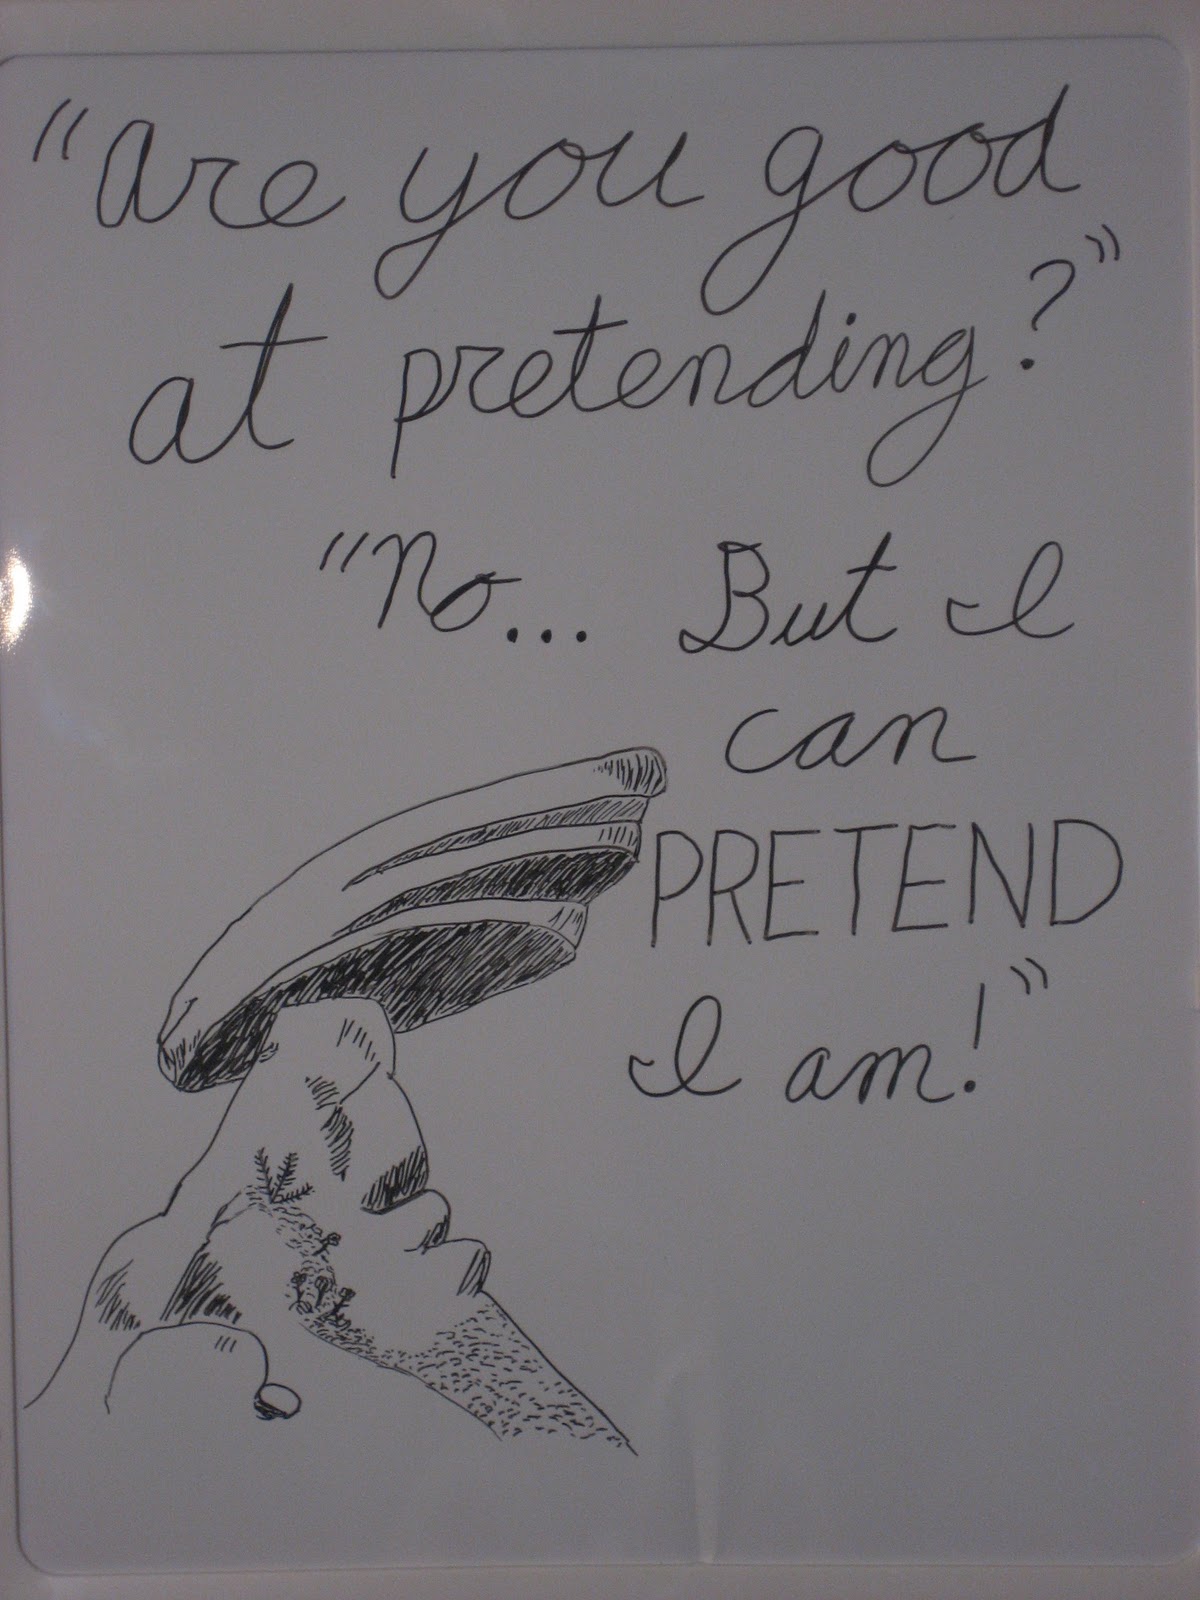 "Are you good
at pretending?"
"No... But I
can
PRETEND
I am!"